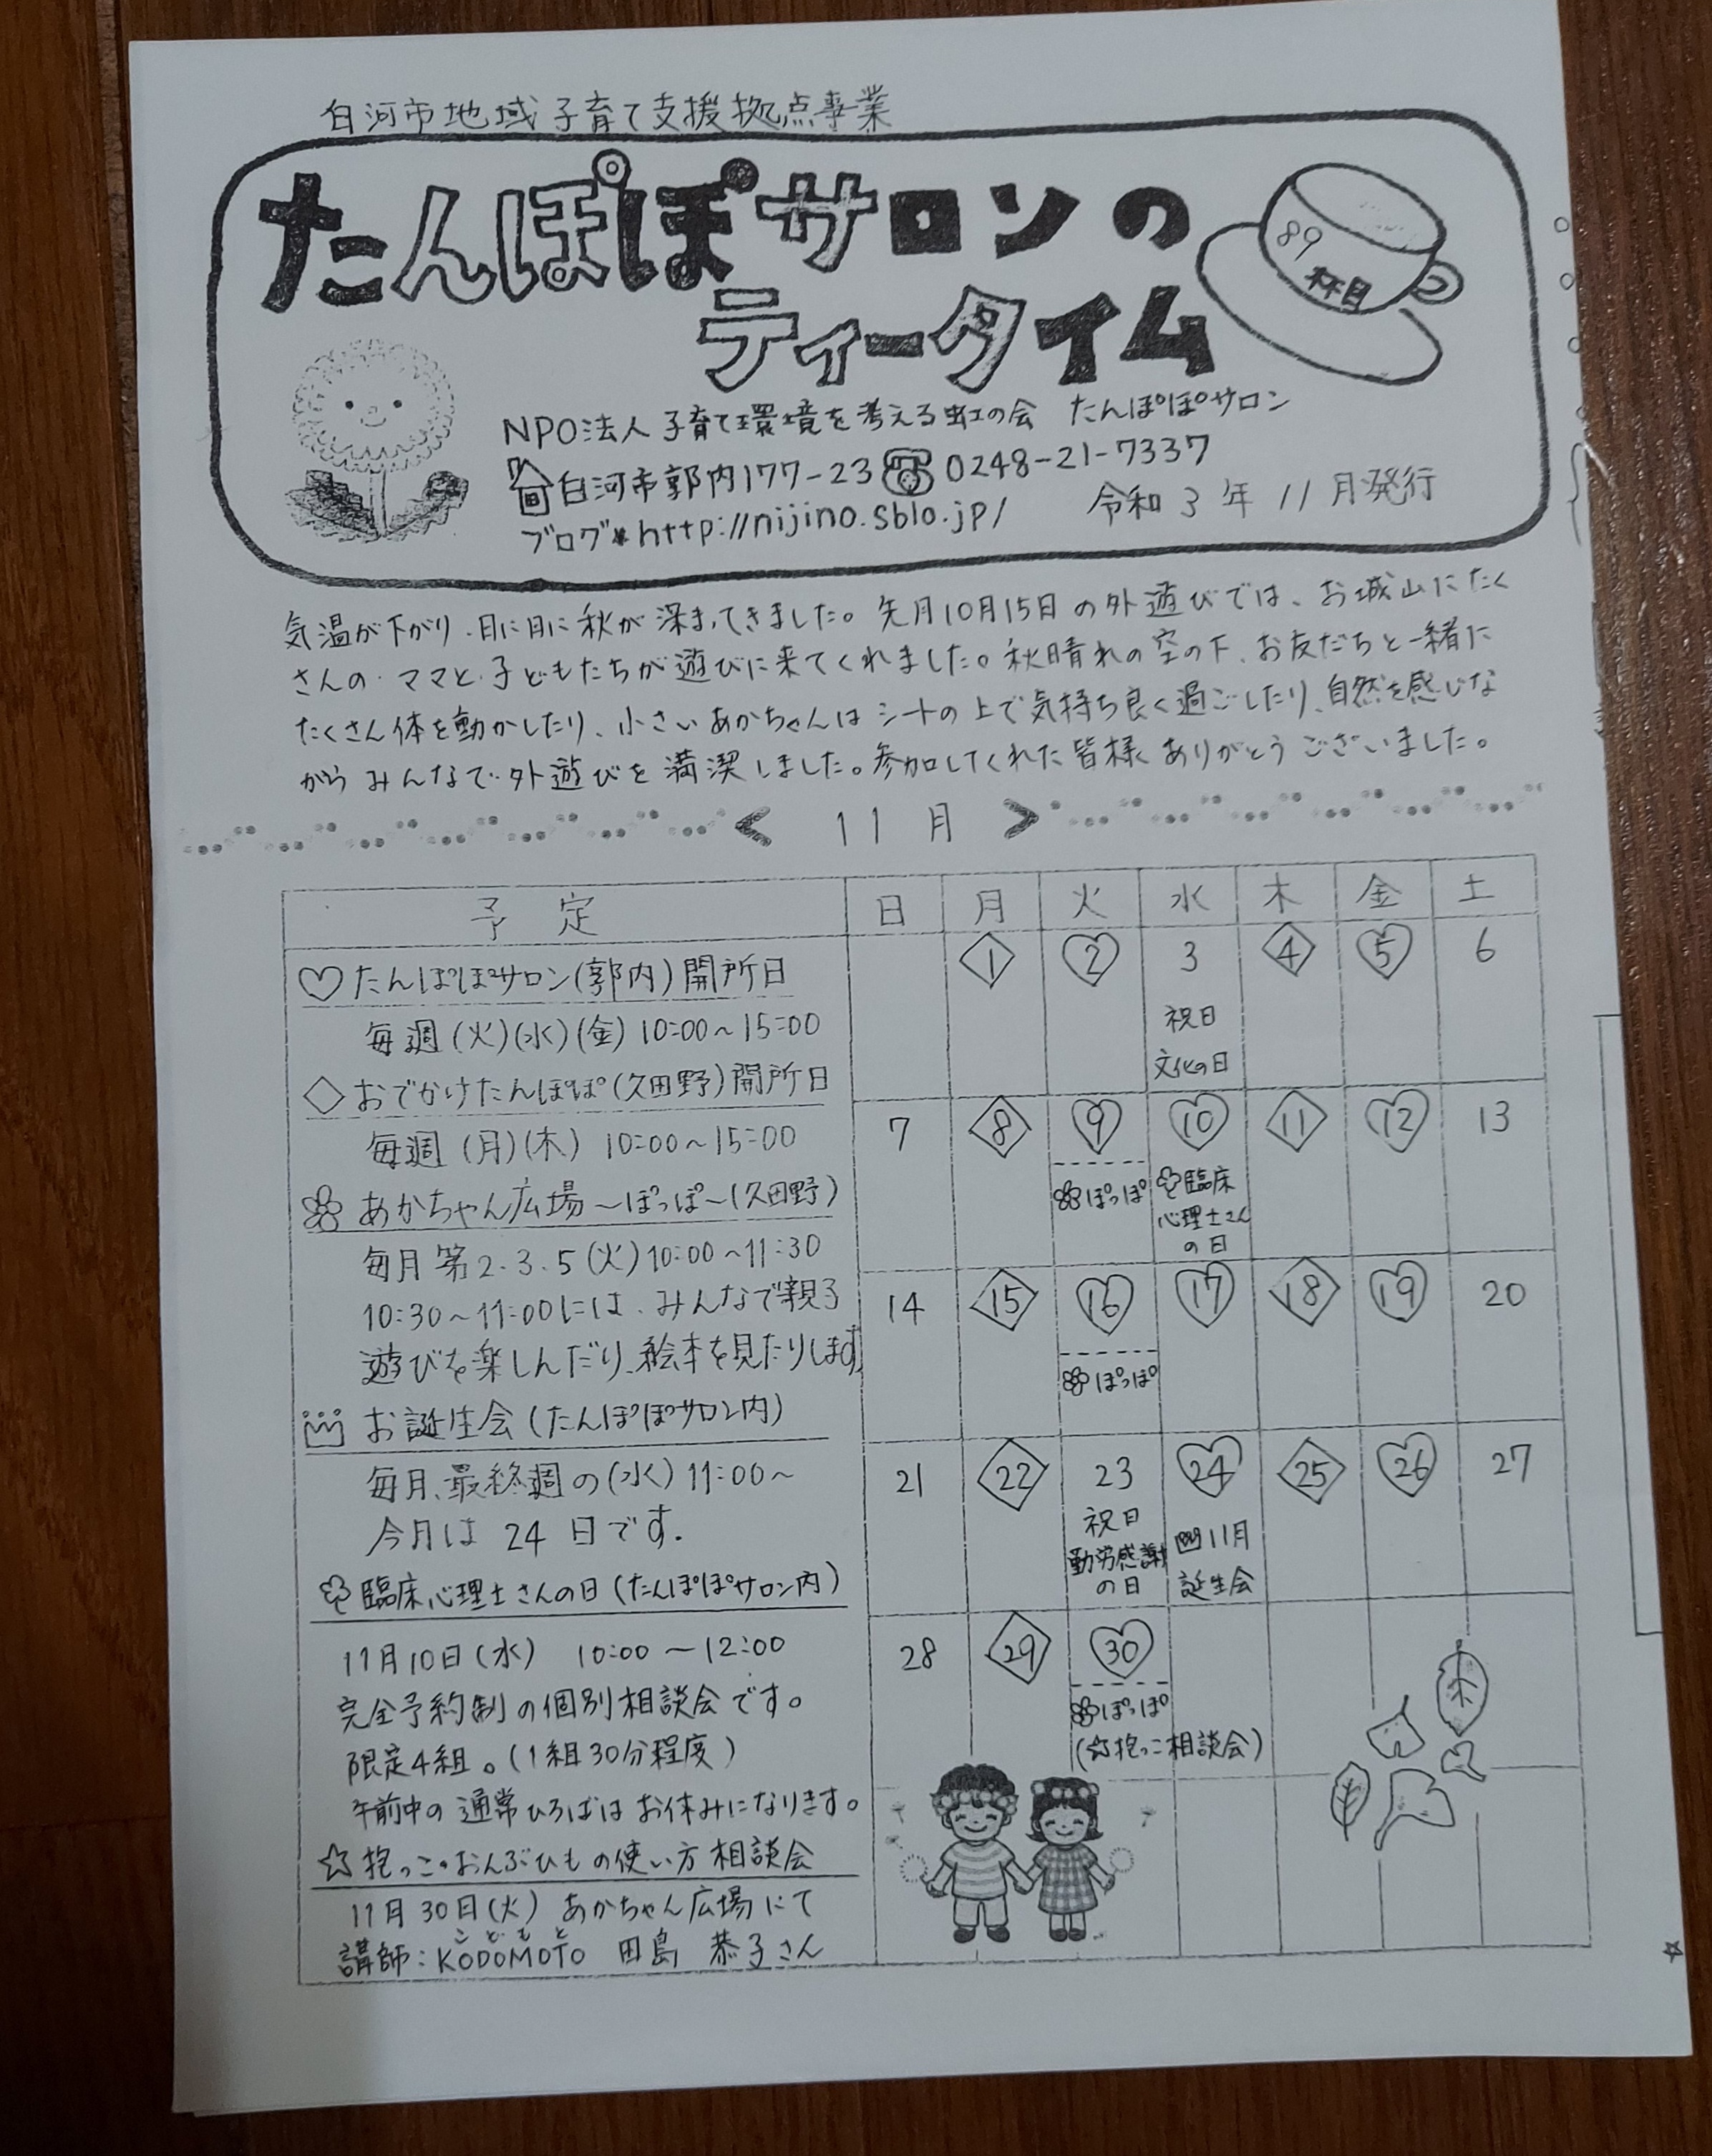 白河市地域子育て支援拠点事業
たんぽぽサロンの
ティータイム
89
杯目
NPO法人子育て環境を考える虹の会 たんぽぽサロン
白河市郭内177-23 0248-21-7337
ブログ*http://nijino.sblo.jp/ 令和3年11月発行
気温が下がり、日に日に秋が深まってきました。先月10月15日の外遊びでは、お城山にたく
さんの ママと子どもたちが遊びに来てくれました。秋晴れの空の下、お友だちと一緒に
たくさん体を動かしたり、小さいあかちゃんはシートの上で気持ち良く過ごしたり、自然を感じな
がら みんなで外遊びを満喫しました。参加してくれた皆様ありがとうございました。
< 11月 >
予定
♡たんぽぽサロン(郭内)開所日
毎週(火)(水)(金)10:00~15:00
◇おでかけたんぽぽ(久田野)開所日
毎週(月)(木)10:00~15:00
あかちゃん広場~ぽっぽ~(久田野)
毎月第2.3.5(火)10:00~11:30
10:30~11:00には、みんなで親子
遊びを楽しんだり、絵本を見たりします
お誕生会(たんぽぽサロン内)
毎月、最終週の(水)11:00~
今月は 24日です.
臨床心理士さんの日(たんぽぽサロン内)
11月10日(水) 10:00~12:00
完全予約制の個別相談会です。
限定4組。(1組30分程度)
午前中の通常ひろばはお休みになります。
☆抱っこ・おんぶひもの使い方相談会
11月30日(火) あかちゃん広場にて
こどもと
講師:KODOMOTO 田島 恭子さん
日 月 火 水 木 金 土
1 2 3 4 5 6
祝日
文化の日
7 8 9 10 11 12 13
ぽっぽ 臨床
心理士さん
の日
14 15 16 17 18 19 20
ぽっぽ
21 22 23 24 25 26 27
祝日 11月
勤労感謝 誕生会
の日
28 29 30
ぽっぽ
(☆抱っこ相談会)